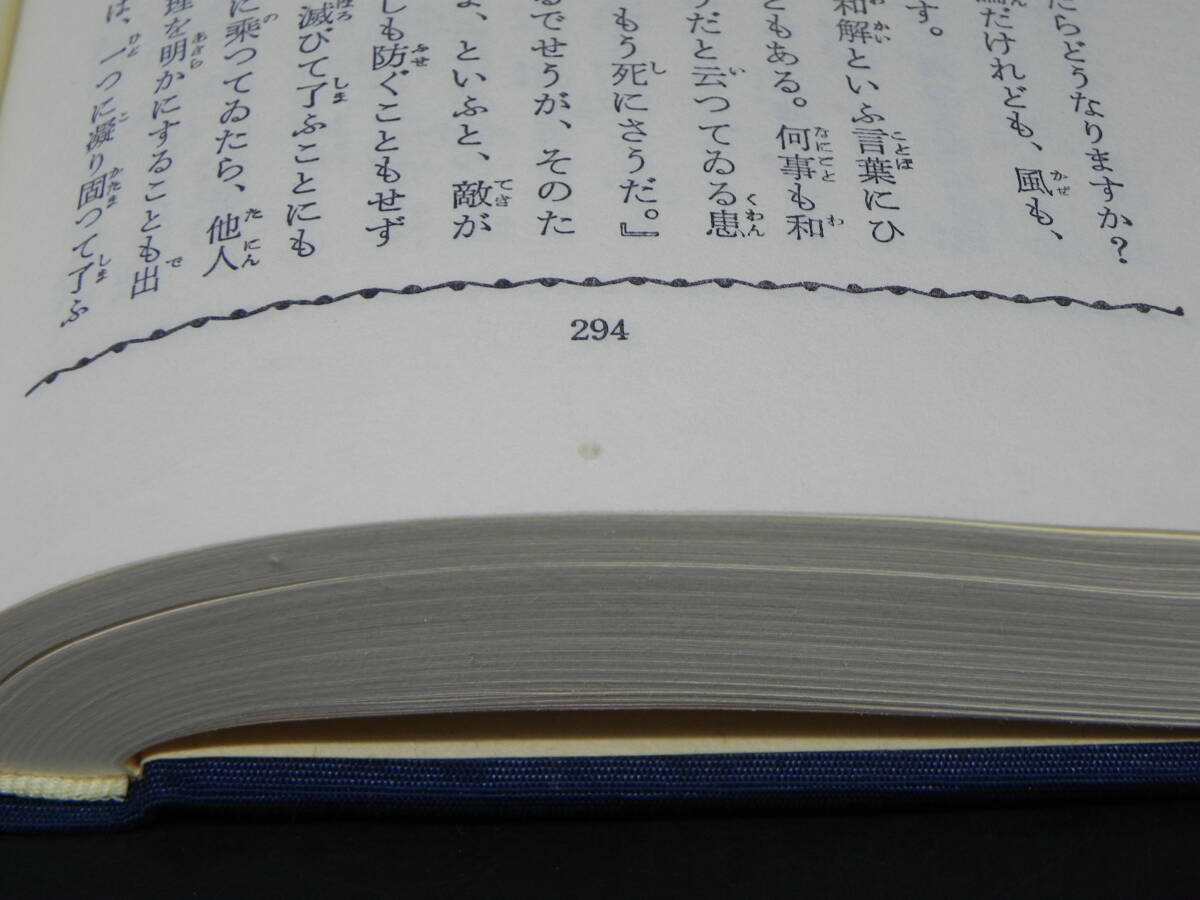 たらどうなりますか?
だけれども、風も、
す。
和解といふ言葉にひ
ともある。何事も和
うだと云つてゐる患
もう死にさうだ。』
るでせうが、そのた
よ、といふと、敵が
しも防ぐこともせず
滅びて了ふことにも
に乗つてゐたら、他人
理を明かにすることも出
は、一つに凝り固つて了ふ
294